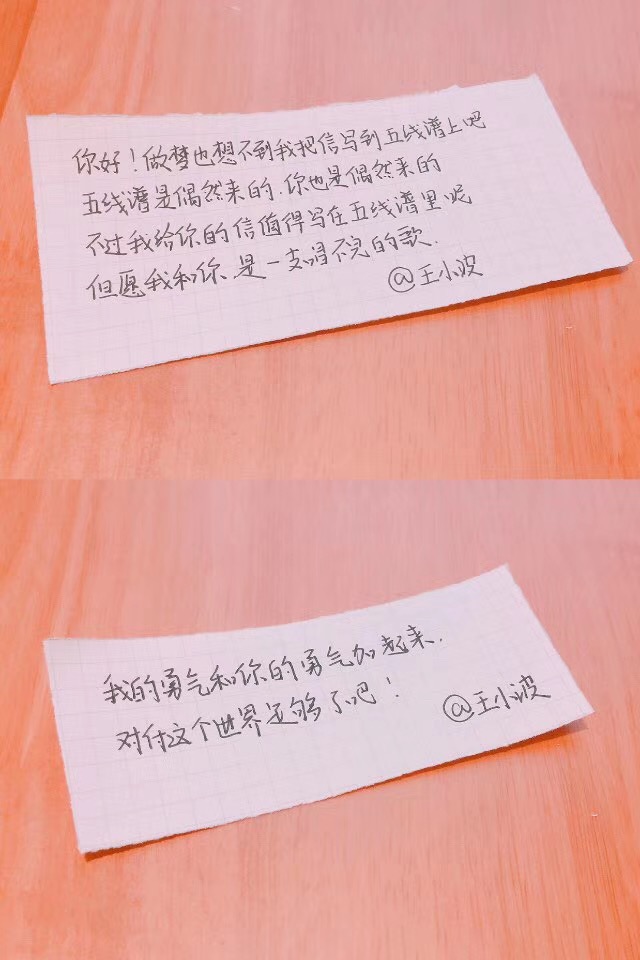 你好！做梦也想不到我把信写到五线谱上吧
五线谱是偶然来的.你也是偶然来的
不过我给你的信值得写在五线谱里呢
但愿我和你.是一支唱不完的歌.
@王小波
我的勇气和你的勇气加起来.
对付这个世界足够了吧！
@王小波